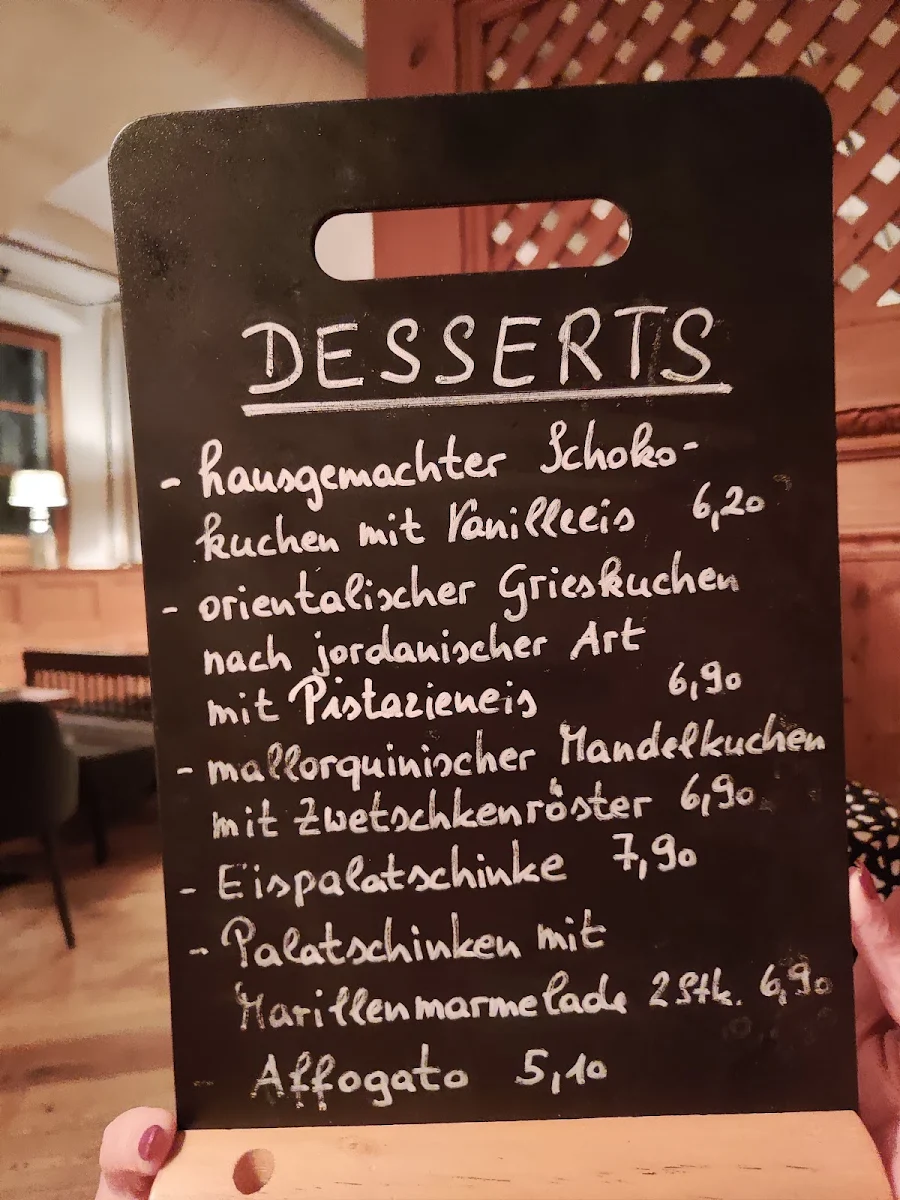 DESSERTS
- hausgemachter Schoko-
kuchen mit Vanilleeis 6,20
- orientalischer Grieskuchen
nach jordanischer Art
mit Pistazieneis 6,90
- mallorquinischer Mandelkuchen
mit Zwetschkenröster 6,90
- Eispalatschinke 7,90
- Palatschinken mit
Marillenmarmelade 2 Stk. 6,90
- Affogato 5,10